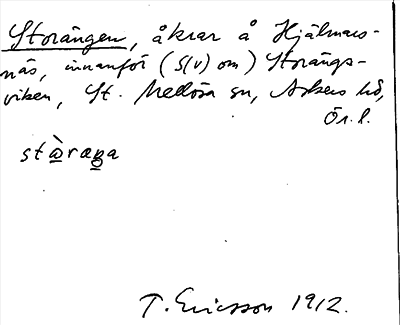 Storängen, åkrar å Hjälmars-
näs, innanför (S(v) om) Storängs-
viken, St. Mellösa sn, Askers hd,
Ör. l.
stɷ̀raŋa
T. Ericsson 1912.